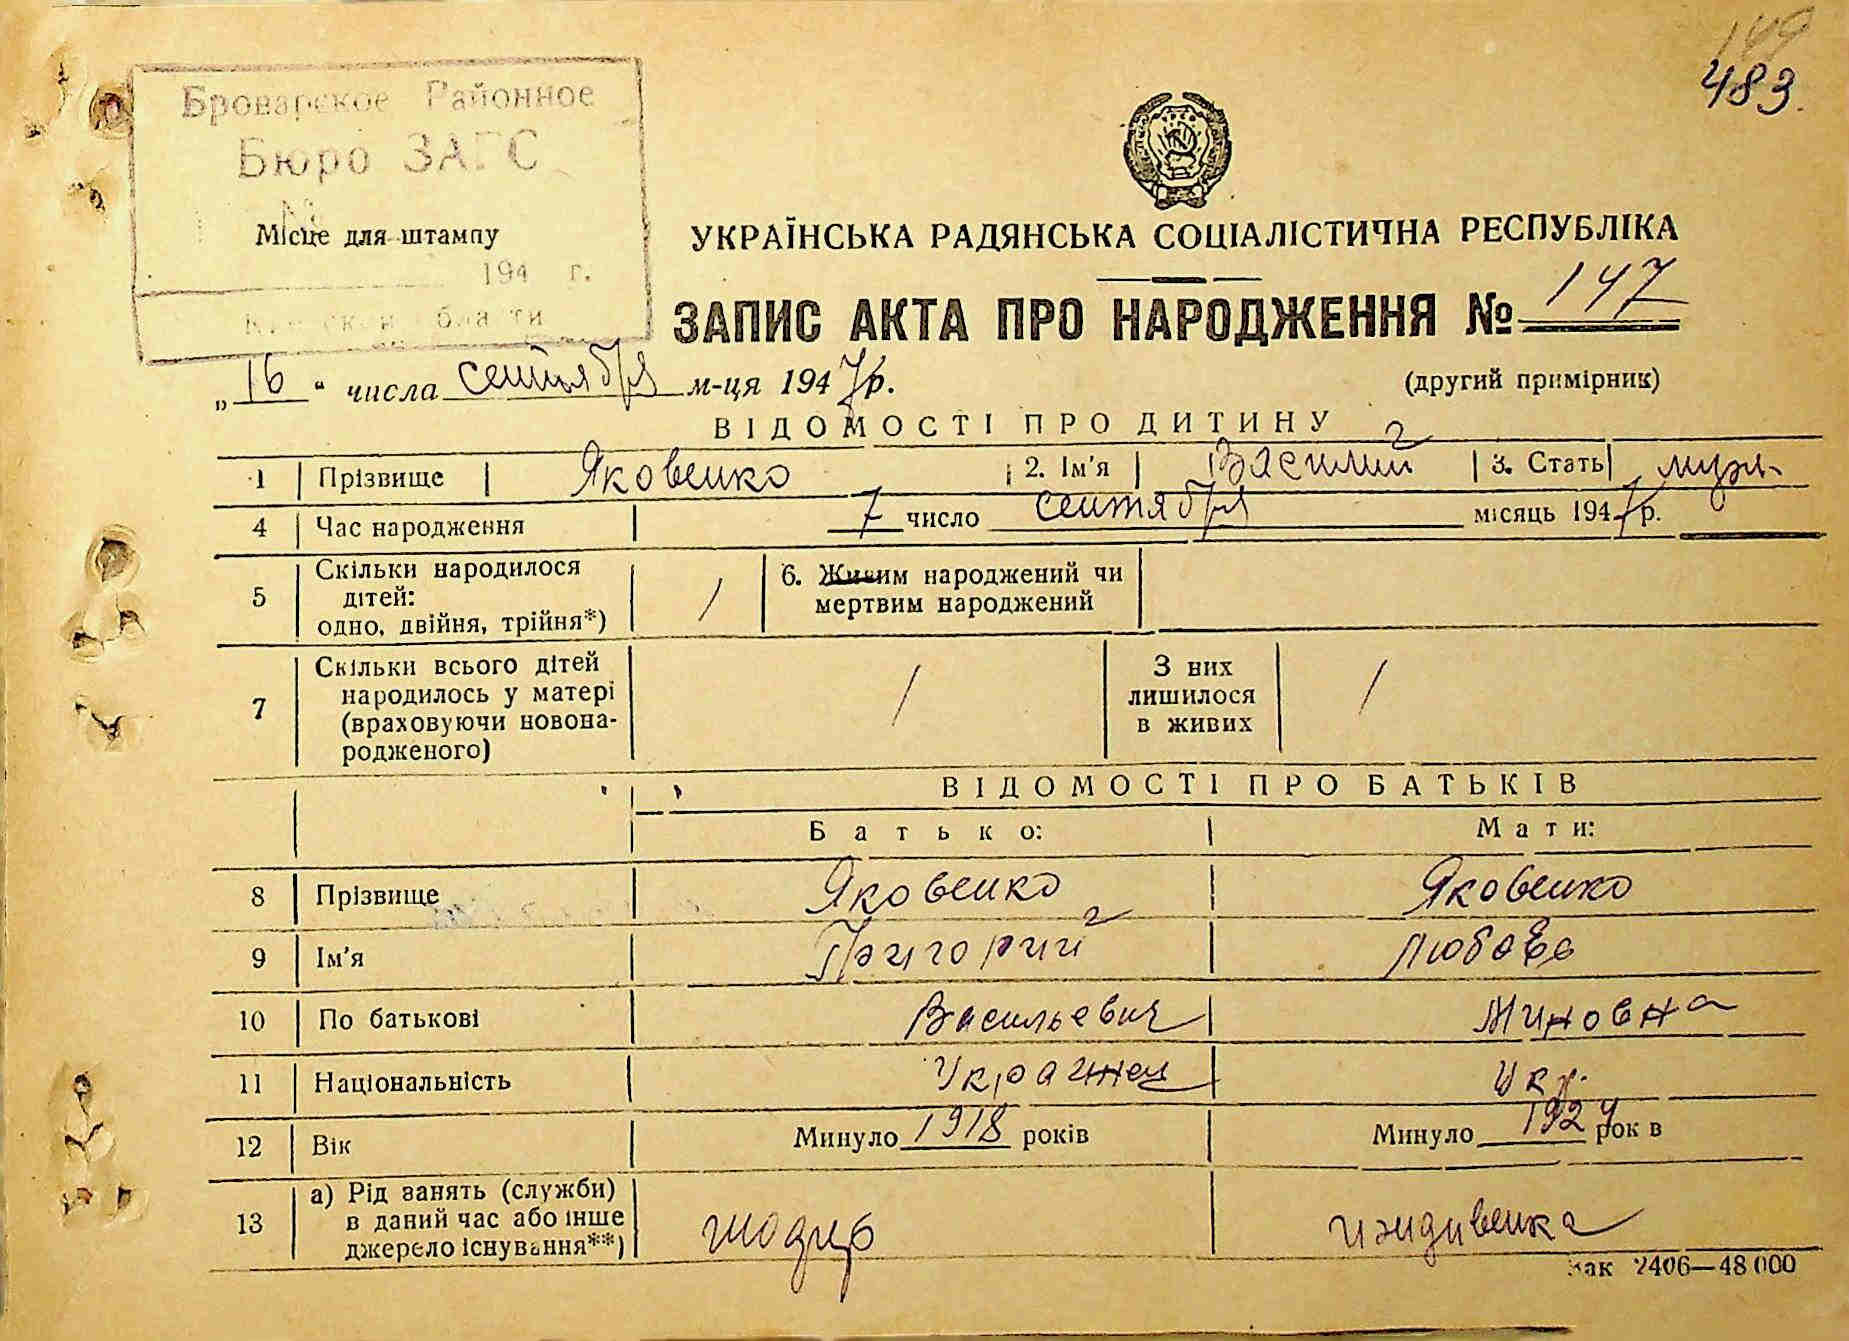 149
483.
Броварское Районное
Бюро ЗАГС
Місце для штампу
194 г.
УКРАЇНСЬКА РАДЯНСЬКА СОЦІАЛІСТИЧНА РЕСПУБЛІКА
ЗАПИС АКТА ПРО НАРОДЖЕННЯ № 147
„16“ числа сентября м-ця 1947 р.
(другий примірник)
ВІДОМОСТІ ПРО ДИТИНУ
1 Прізвище Яковенко 2. Ім'я Василий 3. Стать муж.
4 Час народження 7 число сентября місяць 1947 р.
5 Скільки народилося дітей: одно, двійня, трійня*) / 6. Живим народжений чи мертвим народжений
7 Скільки всього дітей народилось у матері (враховуючи новонародженого) / З них лишилося в живих /
ВІДОМОСТІ ПРО БАТЬКІВ
Батько: Мати:
8 Прізвище Яковенко Яковенко
9 Ім'я Григорий Любовь
10 По батькові Васильевич Миновна
11 Національність Украинец укр.
12 Вік Минуло 1918 років Минуло 1924 рок в
13 а) Рід занять (служби) в даний час або інше джерело існування**) шофер иждивенка
зак 2406—48 000